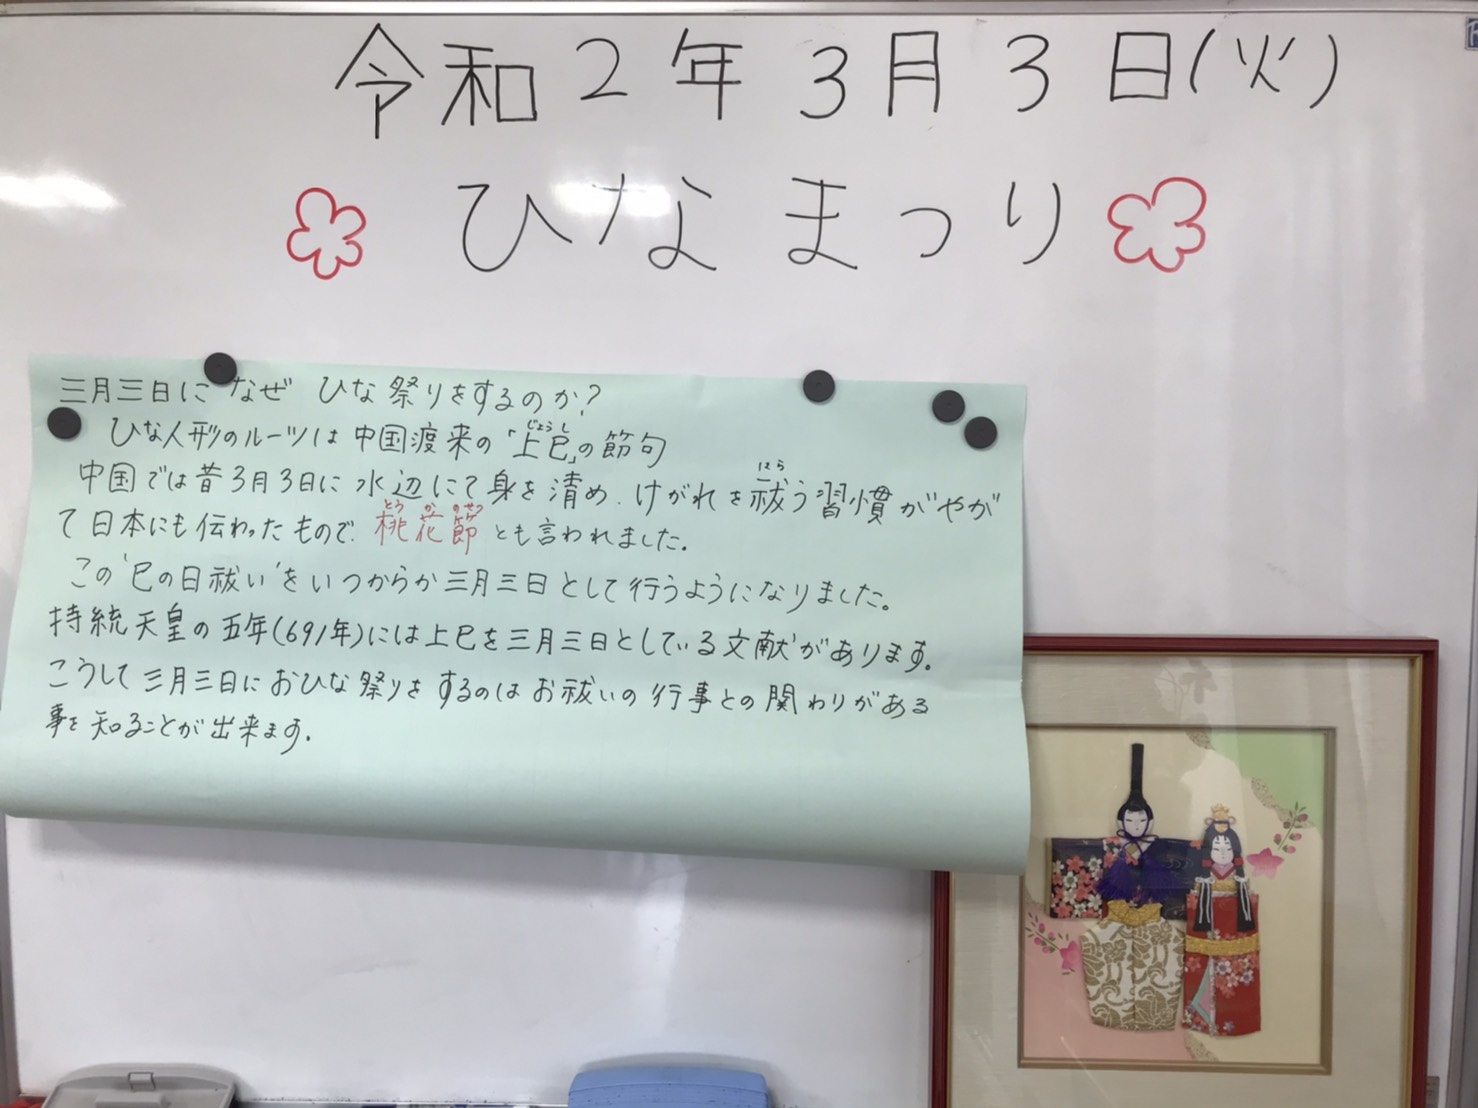 令和2年3月3日(火)
ひなまつり
三月三日になぜ ひな祭りをするのか?
ひな人形のルーツは中国渡来の「上巳」の節句
じょうし
中国では昔3月3日に水辺にて身を清め、けがれを祓う習慣がやが
はら
て日本にも伝わったもので、桃花節とも言われました。
とう か のせつ
この‘巳の日祓い’をいつからか三月三日として行うようになりました。
持統天皇の五年(691年)には上巳を三月三日としている文献があります。
こうして三月三日におひな祭りをするのはお祓いの行事との関わりがある
事を知ることが出来ます。